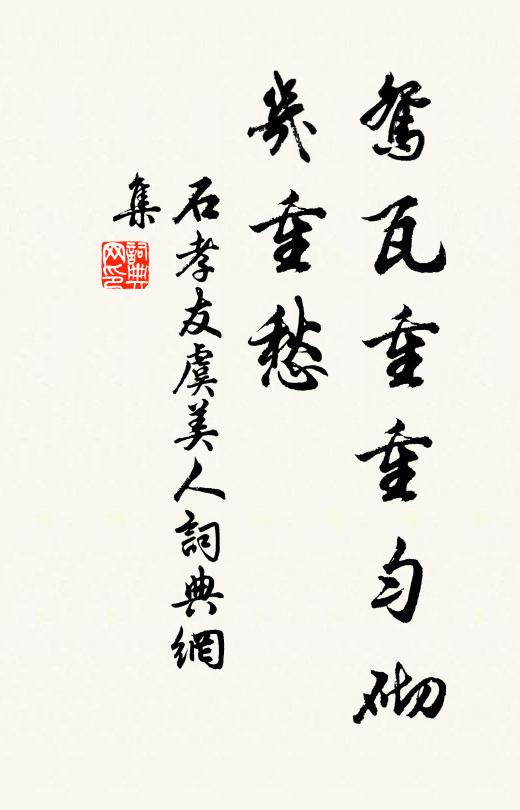 鴛瓦重重匀砌
幾重愁
石孝友虞美人詞典網
集
詞典網印